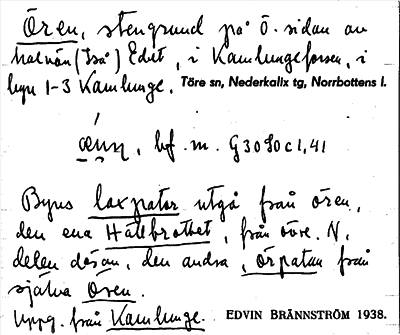 Ören, stengrund på ö. sidan av
halvön (Iså) Edet, i Kamlungeforsen, i
byn 1-3 Kamlunge. Töre sn, Nederkalix tg, Norrbottens l.
bf. m.
Byns laxpator utgå från ören,
den ena Håtebrottet, från övre. N.
delen därav, den andra, örpatan från
själva Ören.
Uppg. från Kamlunge. EDVIN BRÄNNSTRÖM 1938.